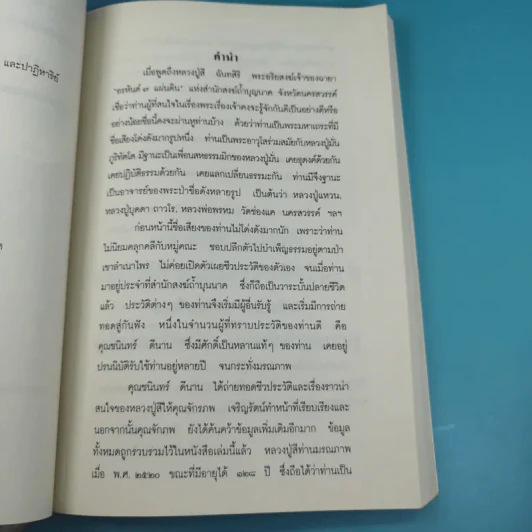 และปาฏิหาริย์
คำนำ
เมื่อพูดถึงหลวงปู่สี ฉันทสิริ พระอริยสงฆ์เจ้าของฉายา
"อรหันต์ ๗ แผ่นดิน" แห่งสำนักสงฆ์ถ้ำบุญนาค จังหวัดนครสวรรค์
เชื่อว่าท่านผู้ที่สนใจในเรื่องพระเรื่องเจ้าคงจะรู้จักกันดีเป็นอย่างดีหรือ
อย่างน้อยชื่อนี้คงจะผ่านหูท่านบ้าง ด้วยว่าท่านเป็นพระมหาเถระที่มี
ชื่อเสียงโด่งดังมากรูปหนึ่ง ท่านเป็นพระอาวุโสร่วมสมัยกับหลวงปู่มั่น
ภูริทัตโต มีฐานะเป็นเพื่อนสหธรรมมิกของหลวงปู่มั่น เคยธุดงค์ด้วยกัน
เคยปฏิบัติธรรมด้วยกัน เคยแลกเปลี่ยนธรรมะกัน ท่านมีจึงฐานะ
เป็นอาจารย์ของพระป่าชื่อดังหลายรูป เป็นต้นว่า หลวงปู่แหวน,
หลวงปู่บุดดา ถาวโร, หลวงพ่อพรหม วัดช่องแค นครสวรรค์ ฯลฯ
ก่อนหน้านี้ชื่อเสียงของท่านไม่โด่งดังมากนัก เพราะว่าท่าน
ไม่นิยมคลุกคลีกับหมู่คณะ ชอบปลีกตัวไปบำเพ็ญธรรมอยู่ตามป่า
เขาลำเนาไพร ไม่ค่อยเปิดตัวเผยชีวประวัติของตัวเอง จนเมื่อท่าน
มาอยู่ประจำที่สำนักสงฆ์ถ้ำบุนนาค ซึ่งก็ถือเป็นวาระบั้นปลายชีวิต
แล้ว ประวัติต่างๆ ของท่านจึงเริ่มมีผู้อื่นรับรู้ และเริ่มมีการถ่าย
ทอดสู่กันฟัง หนึ่งในจำนวนผู้ที่ทราบประวัติของท่านดี คือ
คุณชนินทร์ ดีนาน ซึ่งมีศักดิ์เป็นหลานแท้ๆ ของท่าน เคยอยู่
ปรนนิบัติรับใช้ท่านอยู่หลายปี จนกระทั่งมรณภาพ
คุณชนินทร์ ดีนาน ได้ถ่ายทอดชีวประวัติและเรื่องราวน่า
สนใจของหลวงปู่สีให้คุณจักรภพ เจริญรัตน์ทำหน้าที่เรียบเรียงและ
นอกจากนั้นคุณจักภพ ยังได้ค้นคว้าข้อมูลเพิ่มเติมอีกมาก ข้อมูล
ทั้งหมดถูกรวบรวมไว้ในหนังสือเล่มนี้แล้ว หลวงปู่สีท่านมรณภาพ
เมื่อ พ.ศ. ๒๕๒๐ ขณะที่มีอายุได้ ๑๒๘ ปี ซึ่งถือได้ว่าท่านเป็น